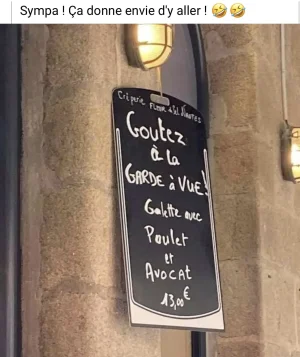 Sympa ! Ça donne envie d'y aller ! 🤣🤣
Crêperie FLEUR de Sel Nantes
Goutez
à la
GARDE à VUE!
Galette avec
Poulet
et
AVOCAT
13,00€